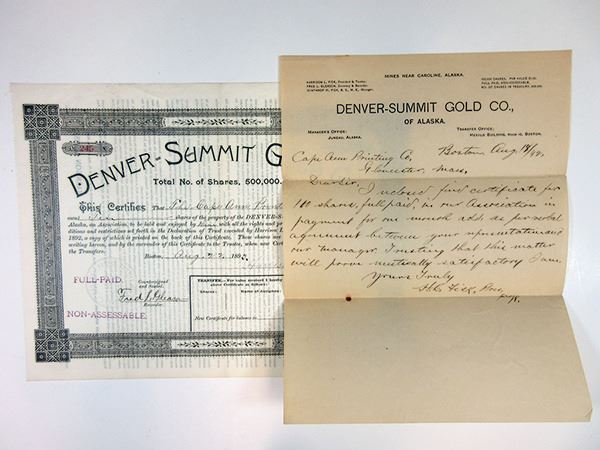 245
DENVER-SUMMIT G
Total No. of Shares, 500,000.
This Certifies The Cape Ann Printi
own Ten shares of the property of the DENVER-S
Alaska, an Association, to be held and enjoyed by them with all the rights and
ditions and restrictions set forth in the Declaration of Trust executed by Harrison
1892, a copy of which is printed on the back of this Certificate. These shares
writing hereon, and by the surrender of this Certificate to the Trustee, when new Certif
the Transferee.
Boston Aug. 22, 189
FULL-PAID.
Countersigned
and Sealed.
Fred L. Gleason
Recorder.
NON-ASSESSABLE.
TRANSFER.—For value received I hereby
above Certificate as follows:
Shares. Name of Assignee.
New Certificate for balance to
HARRISON L. FISK, President & Trustee.
FRED L. GLEASON, Secretary & Recorder.
WINTHROP H. FISK, B. S., M. E., Manager.
MINES NEAR CAROLINE, ALASKA.
500,000 SHARES. PAR VALUE $1.00.
FULL PAID, NON-ASSESSABLE.
NO. OF SHARES IN TREASURY, 200,000.
DENVER-SUMMIT GOLD CO.,
OF ALASKA.
MANAGER'S OFFICE:
JUNEAU, ALASKA.
TRANSFER OFFICE:
HERALD BUILDING, ROOM 10, BOSTON.
Boston Aug
Cape Ann Printing Co.
Gloucester, Mass.
Dear Sir. I inclosed find certificate for
100 shares, full paid, in our Association in
payment for one month add. as per verbal
agreement between your representative and
our manager. Trusting that this matter
will prove mutually satisfactory I am.
Yours Truly
H. L. Fisk, Pres.